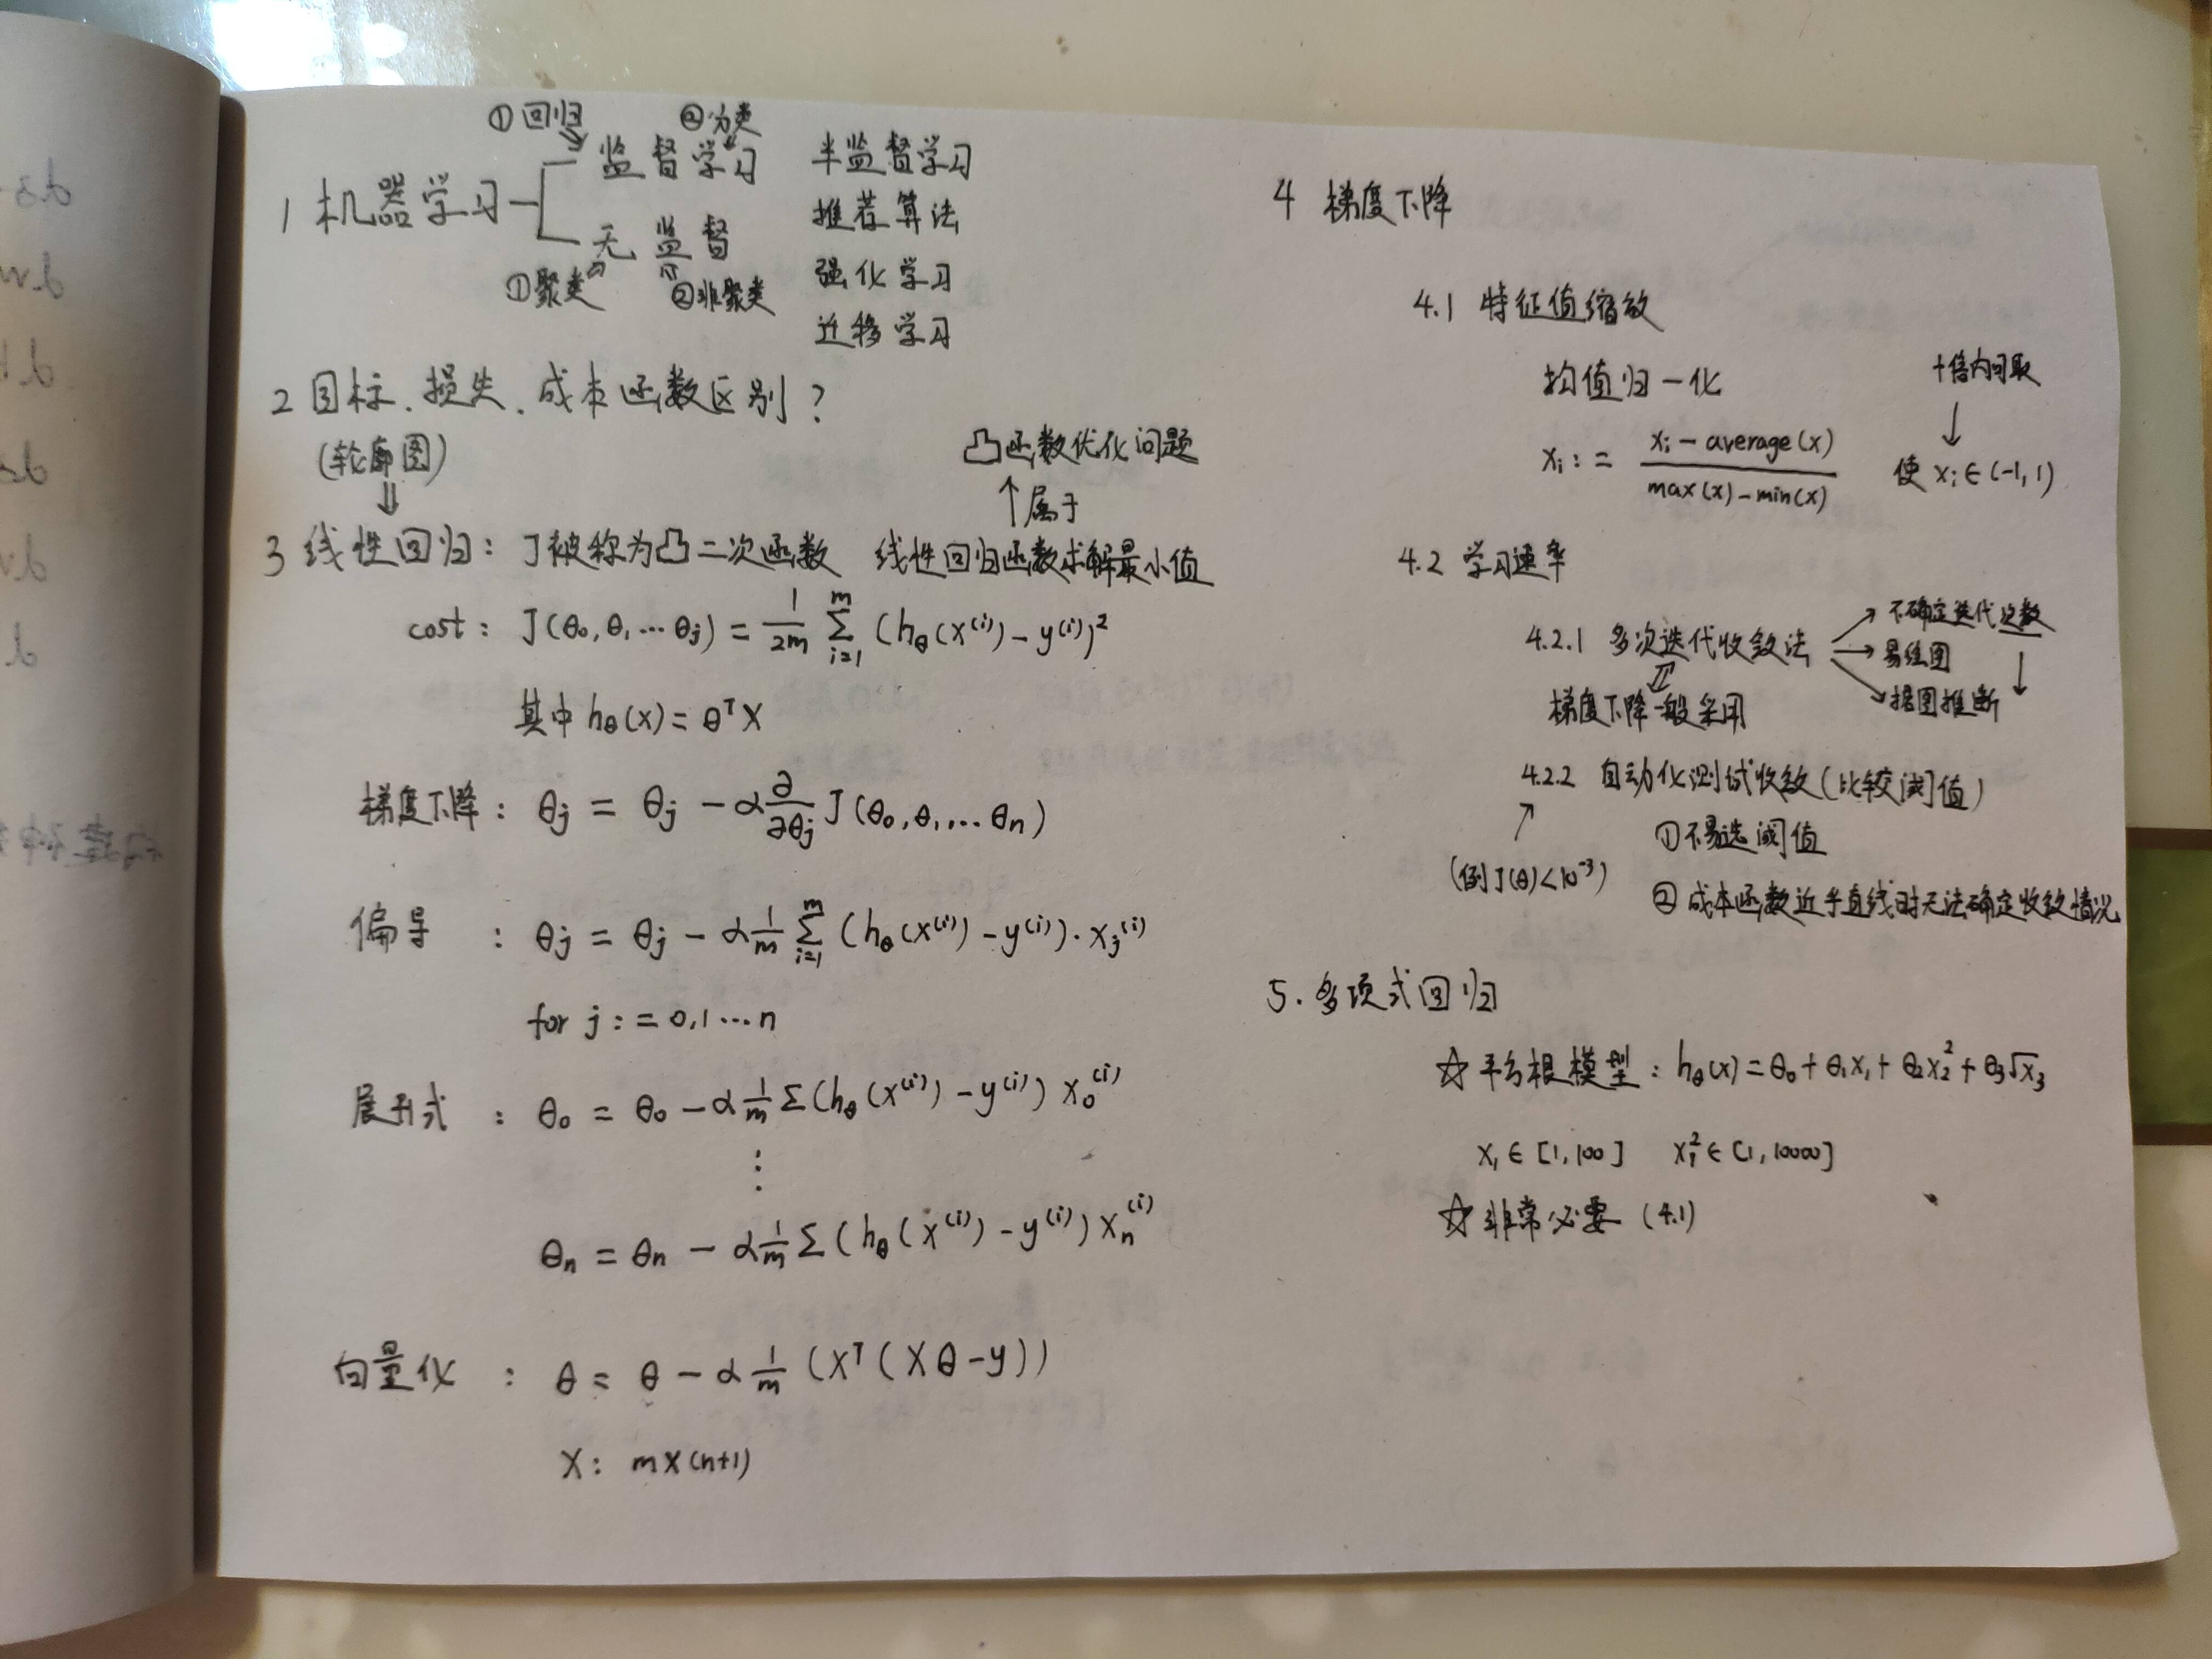 ①回归 ②分类
1 机器学习 监督学习 半监督学习
推荐算法
无监督
①聚类 ②非聚类 强化学习
迁移学习
2 目标、损失、成本函数区别?
(轮廓图)
凸函数优化问题
↑属于
3 线性回归: J被称为凸二次函数 线性回归函数求解最小值
cost: J(θ₀,θ₁…θⱼ) = 1/2m Σ_{i=1}^{m} (h_θ(x⁽ⁱ⁾) - y⁽ⁱ⁾)²
其中 h_θ(x) = θᵀX
梯度下降: θⱼ = θⱼ - α ∂/∂θⱼ J(θ₀,θ₁,…θₙ)
偏导: θⱼ = θⱼ - α 1/m Σ_{i=1}^{m} (h_θ(x⁽ⁱ⁾) - y⁽ⁱ⁾)·xⱼ⁽ⁱ⁾
for j := 0,1…n
展开式: θ₀ = θ₀ - α 1/m Σ(h_θ(x⁽ⁱ⁾) - y⁽ⁱ⁾) x₀⁽ⁱ⁾
⋮
θₙ = θₙ - α 1/m Σ(h_θ(x⁽ⁱ⁾) - y⁽ⁱ⁾) xₙ⁽ⁱ⁾
向量化: θ = θ - α 1/m (Xᵀ(Xθ-y))
X: m×(n+1)
4 梯度下降
4.1 特征值缩放
均值归一化 十倍内可取
↓
xᵢ := (xᵢ - average(x)) / (max(x) - min(x)) 使 xᵢ∈(-1,1)
4.2 学习速率
4.2.1 多次迭代收敛法 → 不确定迭代次数
→ 易绘图
→ 据图推断
梯度下降一般采用
4.2.2 自动化测试收敛(比较阈值)
①不易选阈值
(例J(θ)<10⁻³)
②成本函数近乎直线时无法确定收敛情况
5. 多项式回归
☆平方根模型: h_θ(x) = θ₀+θ₁x₁+θ₂x₂²+θ₃√x₃
x₁∈[1,100] x₁²∈[1,10000]
☆非常必要 (4.1)